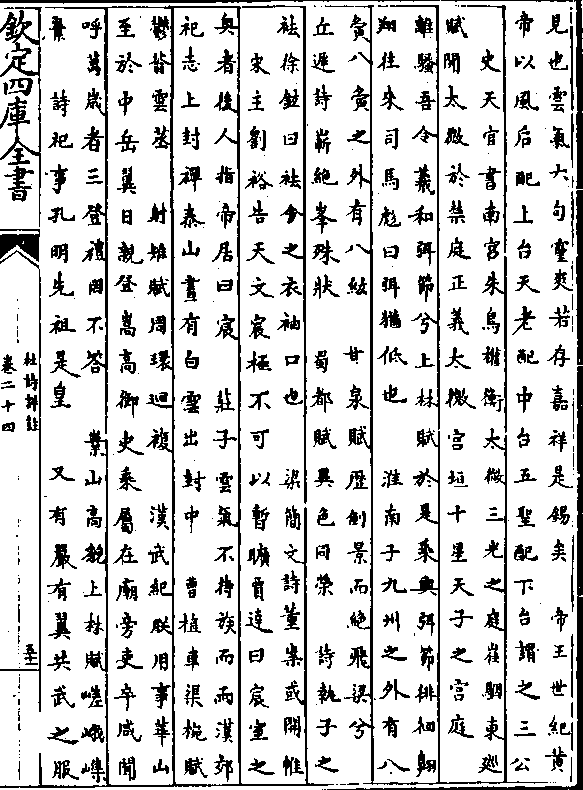 見也雲氣六句靈爽若存嘉祥是錫矣　帝王世紀黄
帝以風后配上台天老配中台五聖配下台謂之三公
史天官書南宮朱鳥權衡太微三光之庭崔駰東廵
賦開太微於禁庭正義太微宮垣十星天子之宮庭
離騷吾令羲和弭節兮上林賦於是乗輿弭節徘徊翺
翔往來司馬彪曰弭猶低也　淮南子九州之外有八
夤八夤之外有八紘　甘泉賦歴倒景而絶飛梁兮
丘遲詩嶄絶峯殊狀　蜀都賦異色同榮　詩執子之
袪徐鉉曰袪今之衣袖口也　梁簡文詩董崇或開帷
宋主劉裕告天文宸極不可以暫曠賈逵曰宸室之
奥者後人指帝居曰宸　莊子雲氣不待族而雨漢郊
祀志上封禪泰山晝有白雲出封中　曹植車渠椀賦
鬱若雲蒸　射雉賦周環迴複　漢武紀朕用事華山
至於中岳翼日親登嵩高御史乘屬在廟旁吏卒咸聞
呼萬歳者三登禮罔不答　崇山高貌上林賦嵯峨㠎
嶪　詩祀事孔明先祖是皇　又有嚴有翼共武之服
欽定四庫全書
杜詩詳註
卷二十四